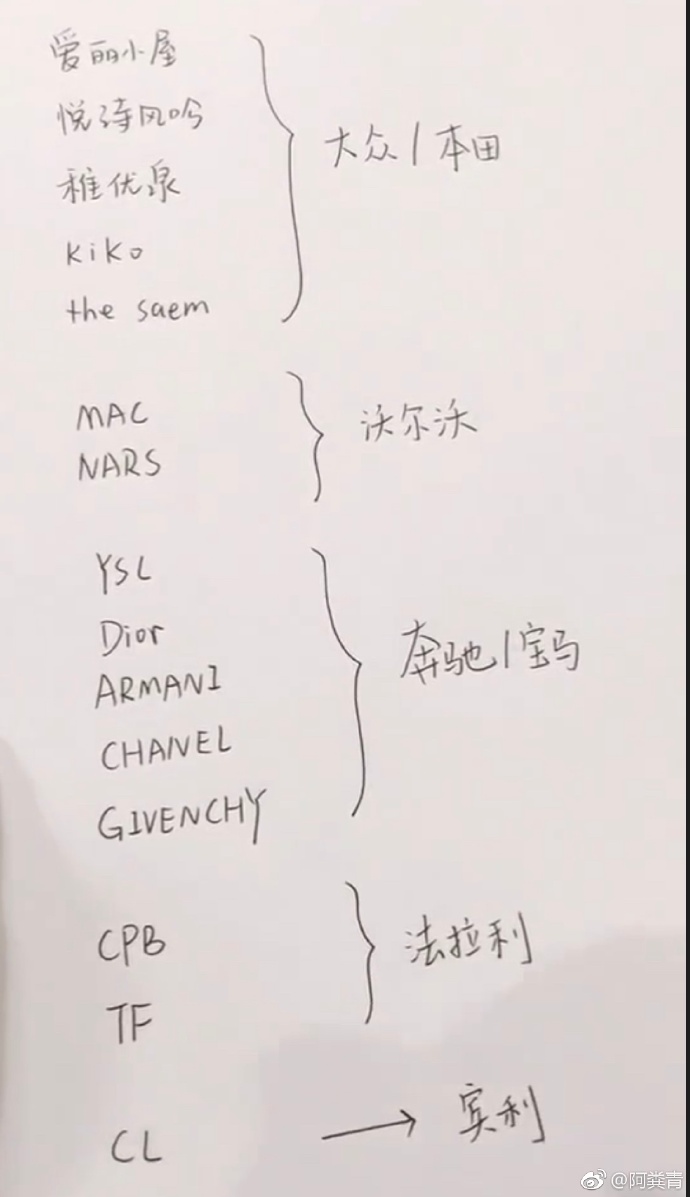 爱丽小屋
悦诗风吟
稚优泉
kiko
the saem
大众/本田
MAC
NARS
沃尔沃
YSL
Dior
ARMANI
CHANEL
GIVENCHY
奔驰/宝马
CPB
TF
法拉利
CL
宾利
@阿粪青